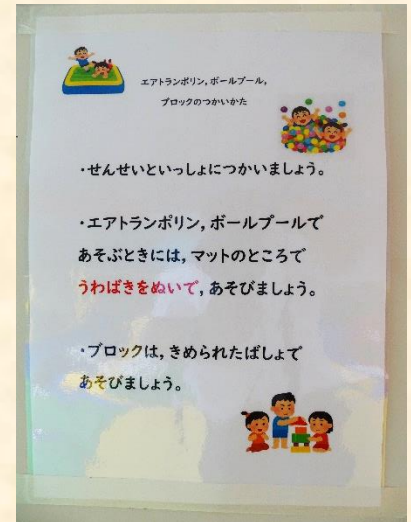 エアトランポリン,ボールプール,
ブロックのつかいかた
・せんせいといっしょにつかいましょう。
・エアトランポリン,ボールプールで
あそぶときには,マットのところで
うわばきをぬいで,あそびましょう。
・ブロックは,きめられたばしょで
あそびましょう。